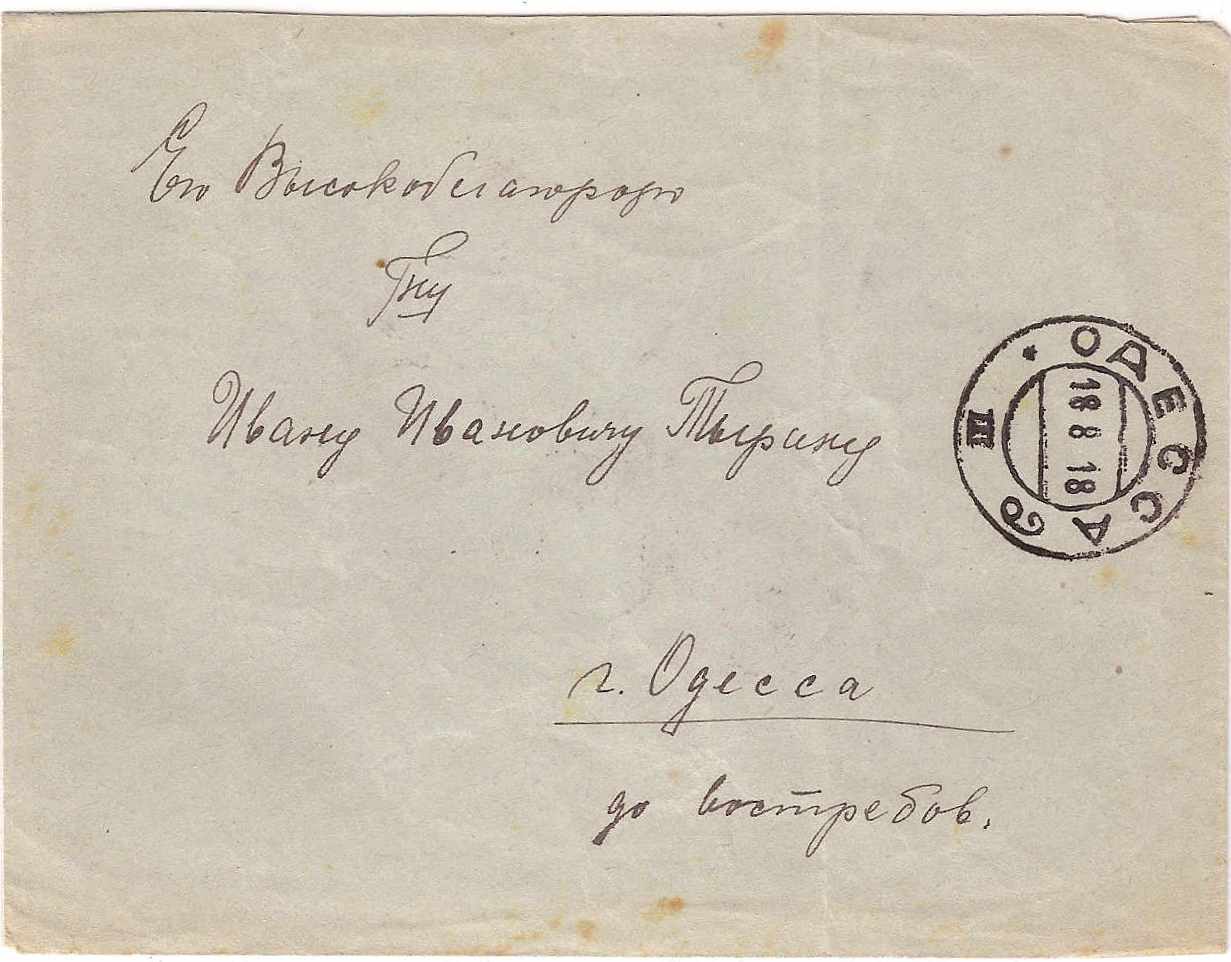 Его Высокоблагородю
Гну
Ивану Ивановичу Тырину
г. Одесса
до востребов.
* ОДЕССА
18 8 18
Ш